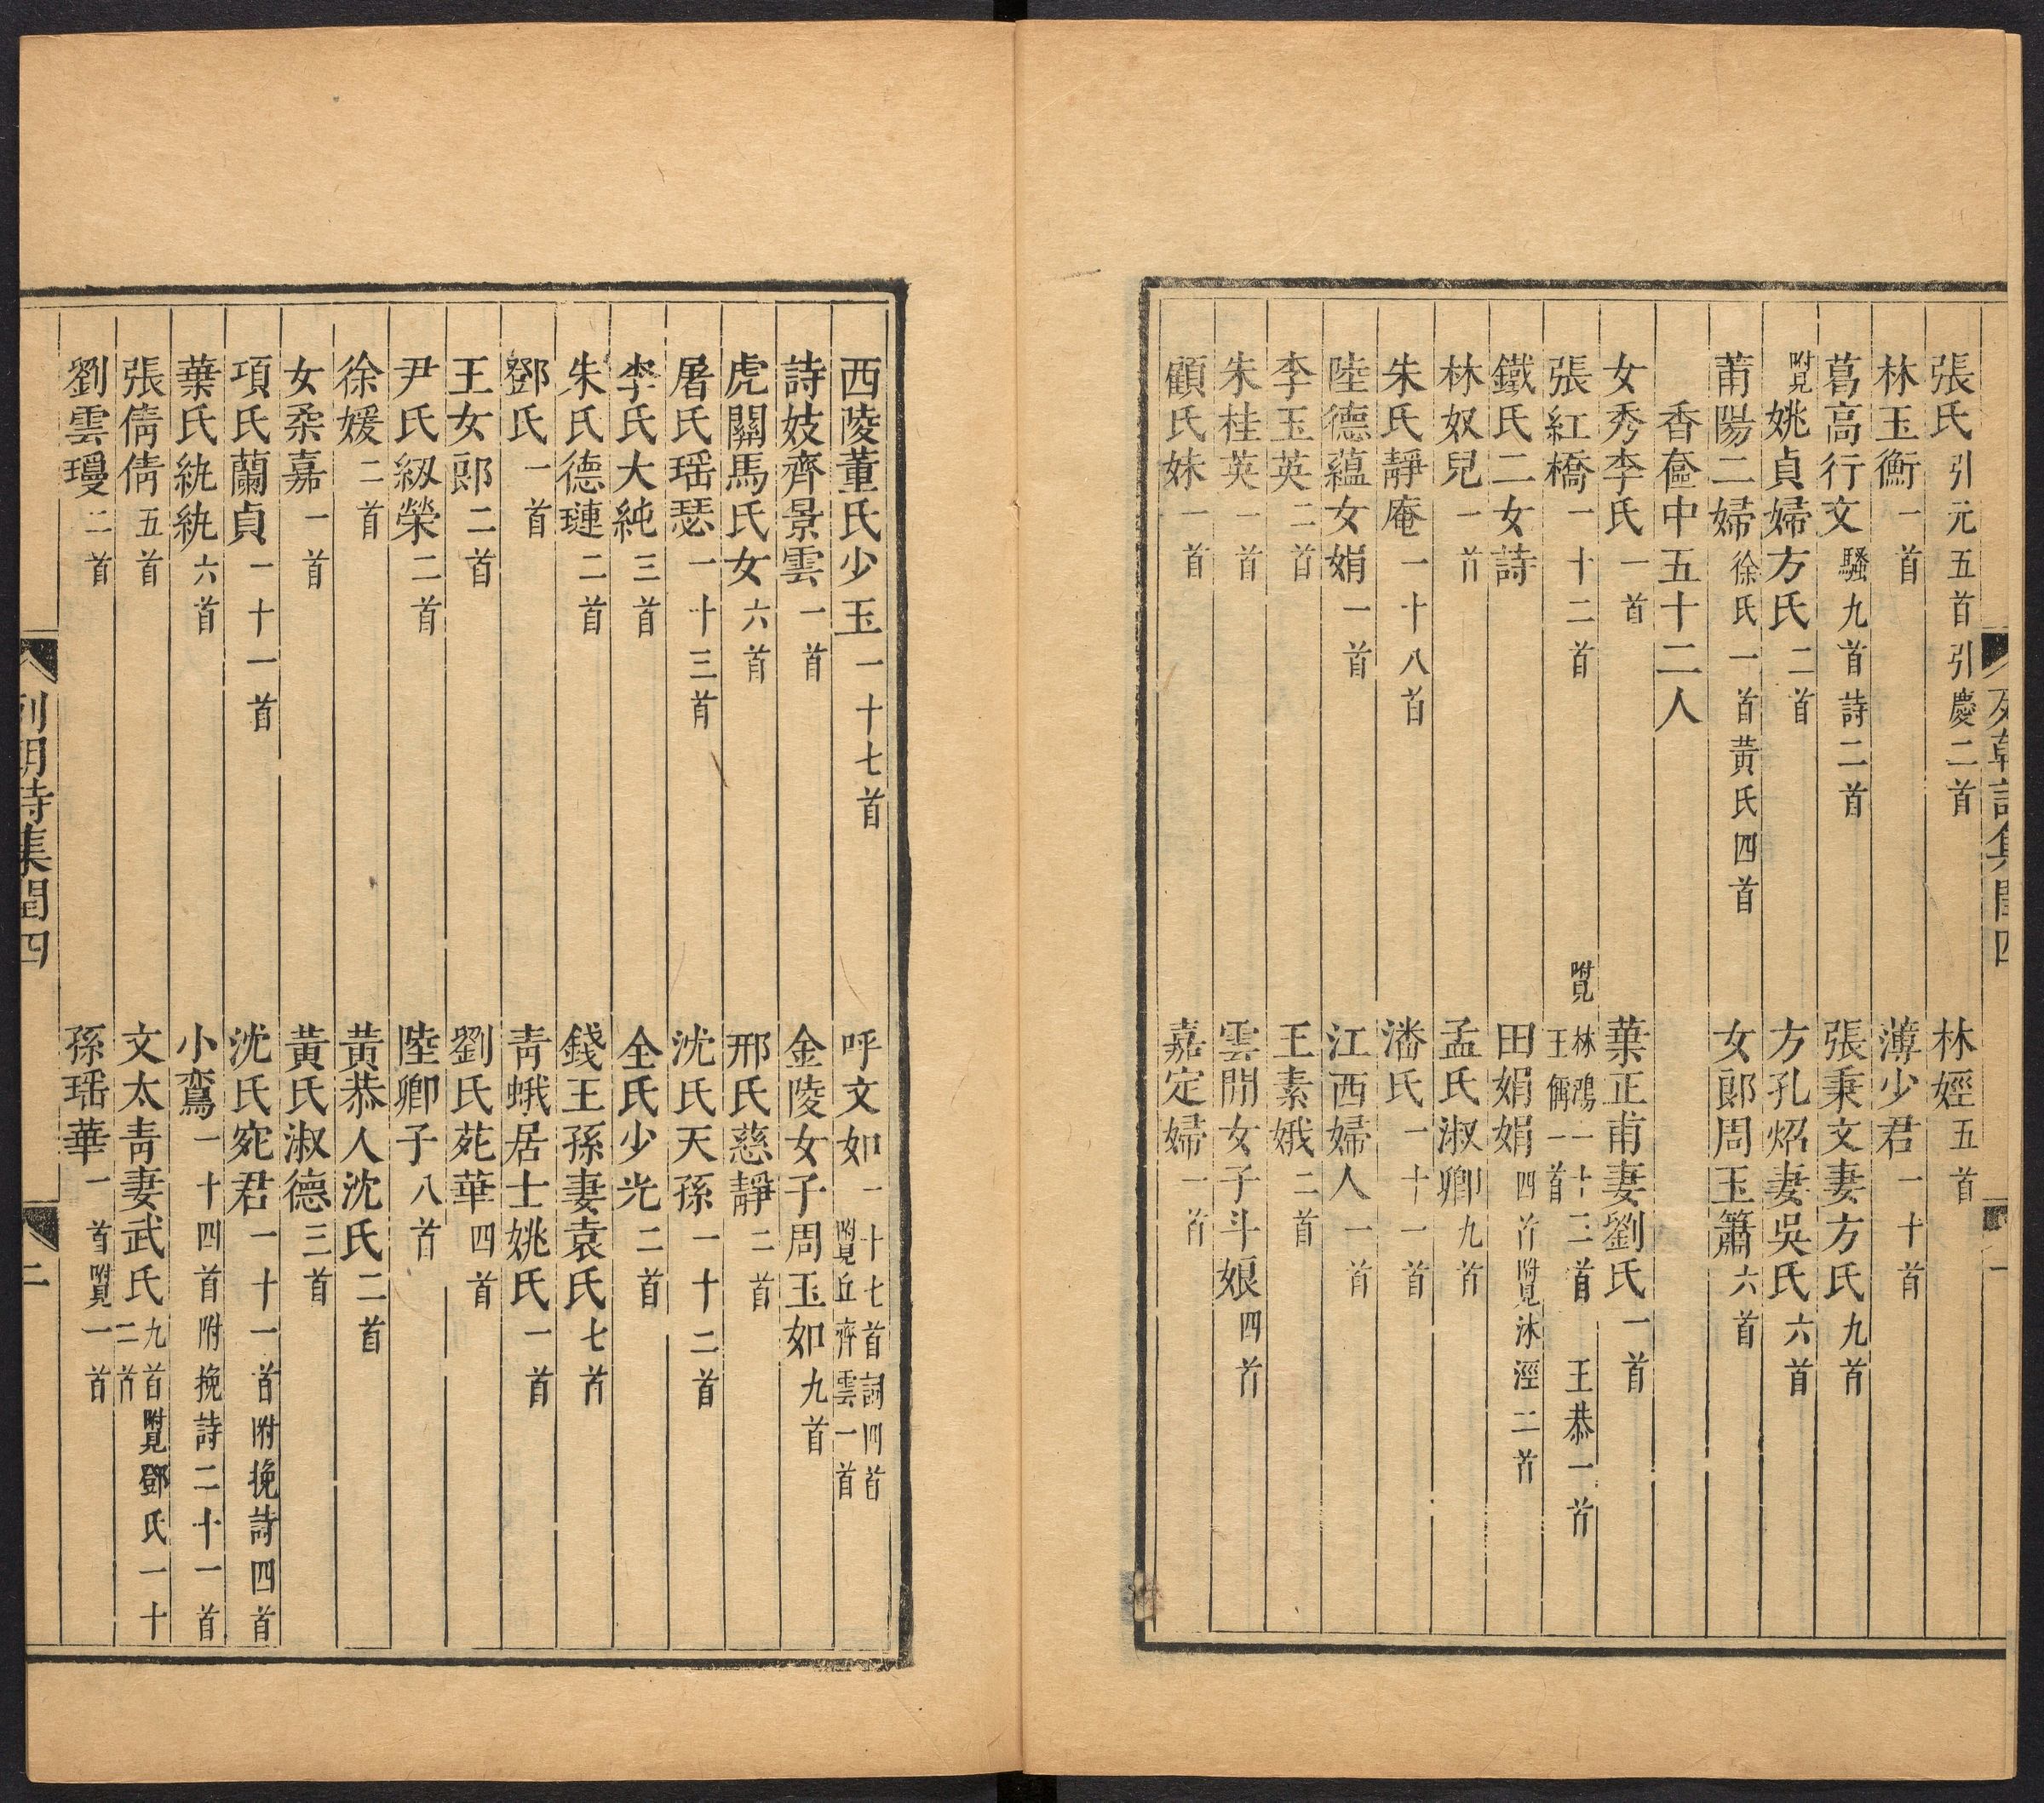 列朝詩集閏四
一
張氏引元五首引慶二首 林娙五首
林玉衡一首 薄少君一十首
葛高行文騷九首詩二首 張秉文妻方氏九首
附見姚貞婦方氏二首 方孔炤妻吳氏六首
莆陽二婦徐氏一首黄氏四首 女郎周玉簫六首
香奩中五十二人
女秀李氏一首 葉正甫妻劉氏一首
張紅橋一十二首 附見林鴻一十二首 王恭一首 王偁一首
鐵氏二女詩 田娟娟四首附見沐涇二首
林奴兒一首 孟氏淑卿九首
朱氏靜庵一十八首 潘氏一十一首
陸德蘊女娟一首 江西婦人一首
李玉英二首 王素娥二首
朱桂英一首 雲間女子斗娘四首
顧氏妹一首 嘉定婦一首
西陵董氏少玉一十七首 呼文如一十七首詞四首附見丘齊雲一首
詩妓齊景雲一首 金陵女子周玉如九首
虎關馬氏女六首 邢氏慈靜二首
屠氏瑶瑟一十三首 沈氏天孫一十二首
李氏大純三首 全氏少光二首
朱氏德璉二首 錢王孫妻袁氏七首
鄧氏一首 青蛾居士姚氏一首
王女郎二首 劉氏苑華四首
尹氏紉榮二首 陸卿子八首
徐媛二首 黄恭人沈氏二首
女柔嘉一首 黄氏淑德三首
項氏蘭貞一十一首 沈氏宛君一十一首附挽詩四首
葉氏紈紈六首 小鸞一十四首附挽詩二十一首
張倩倩五首 文太青妻武氏九首附見鄧氏一十二首
劉雲瓊二首 孫瑶華一首附見一首
列朝詩集閏四
二